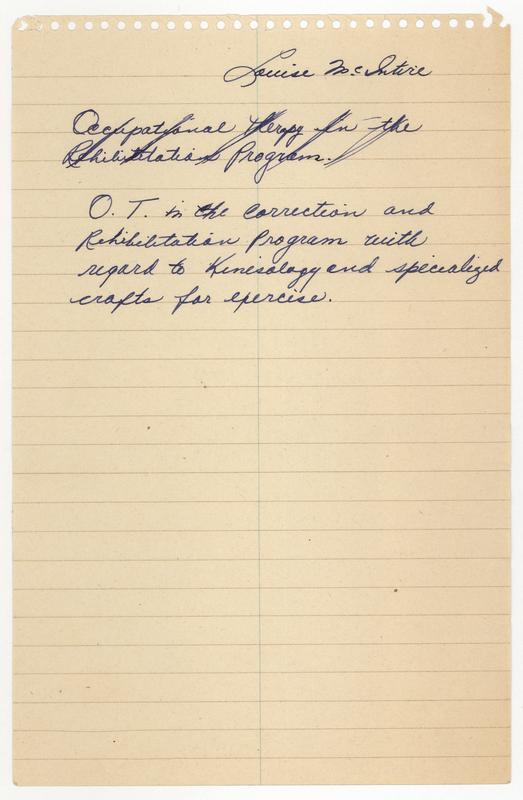 Louise McIntire
Occupational Therapy in the
Rehilitation Program.
O. T. in the correction and
Rehibilitation Program with
regard to Kinesology and specialized
crafts for exercise.